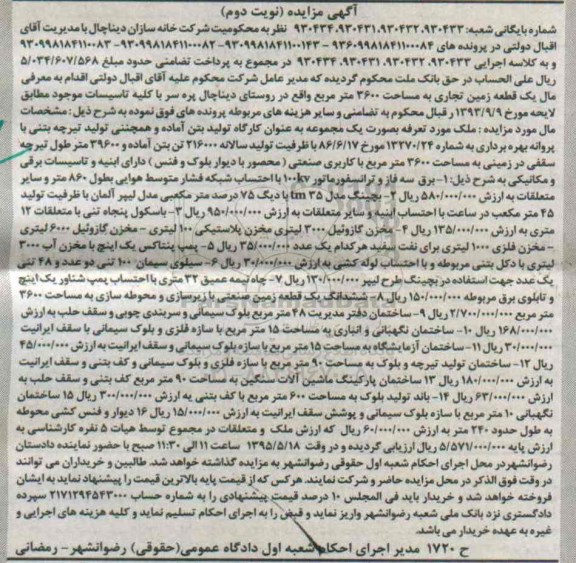 آگهی مزایده (نوبت دوم)
شماره بایگانی شعبه: ۹۳۰۴۳۴،۹۳۰۴۳۱،۹۳۰۴۳۲،۹۳۰۴۳۳ نظر به محکومیت شرکت خانه سازان دیناچال با مدیریت آقای
اقبال دولتی در پرونده های ۹۳۶۰۹۹۸۱۸۴۱۱۰۰۰۸۴ -۹۳۰۹۹۸۱۸۴۱۱۰۰۱۴۳ -۹۳۰۹۹۸۱۸۴۱۱۰۰۰۸۲ -۹۳۰۹۹۸۱۸۴۱۱۰۰۰۸۳
و به کلاسه اجرایی ۹۳۰۴۳۳، ۹۳۰۴۳۲، ۹۳۰۴۳۱، ۹۳۰۴۳۴ در مجموع به پرداخت تضامنی حدود مبلغ ۵/۰۳۴/۶۰۷/۵۶۸
ریال علی الحساب در حق بانک ملت محکوم گردیده که مدیر عامل شرکت محکوم علیه آقای اقبال دولتی اقدام به معرفی
مال یک قطعه زمین تجاری به مساحت ۳۶۰۰ متر مربع واقع در روستای دیناچال پره سر با کلیه تاسیسات موجود مطابق
لایحه مورخ ۱۳۹۳/۹/۹ قبال محکوم به تضامنی و سایر هزینه های مربوطه پرونده های فوق نموده به شرح ذیل: مشخصات
مال مورد مزایده: ملک مورد تعرفه بصورت یک مجموعه به عنوان کارگاه تولید بتن آماده و همچننی تولید تیرچه بتنی با
پروانه بهره برداری به شماره ۱۳۲۷۰/۲۴ مورخ ۸۶/۶/۱۷ با ظرفیت تولید سالانه ۲۱۶۰۰۰ تن بتن آماده و ۳۹۶۰۰ متر طول تیرچه
سقفی در زمینی به مساحت ۳۶۰۰ متر مربع با کاربری صنعتی (محصور با دیوار بلوک و فنس) دارای ابنیه و تاسیسات برقی
و مکانیکی به شرح ذیل: ۱- برق سه فاز و ترانسفورماتور ۱۰۰kv با احتساب شبکه فشار متوسط هوایی بطول ۸۶۰ متر و سایر
متعلقات به ارزش ۵۸۰/۰۰۰/۰۰۰ ریال ۲- بچینگ مدل tm ۳۵ با دیگ ۷۵ درصد متر مکعبی مدل لیپر آلمان با ظرفیت تولید
۴۵ متر مکعب در ساعت با احتساب ابنیه و سایر متعلقات به ارزش ۹۵۰/۰۰۰/۰۰۰ ریال ۳- باسکول پنجاه تنی با متعلقات ۱۲
متری به ارزش ۱۳۵/۰۰۰/۰۰۰ ریال ۴- مخزن گازوئیل ۳۰۰۰ لیتری مخزن پلاستیکی ۱۰۰ لیتری - مخزن گازوئیل ۶۰۰۰ لیتری
- مخزن فلزی ۱۰۰۰ لیتری برای نفت سفید هرکدام یک عدد ۳۵/۰۰۰/۰۰۰ ریال ۵- پمپ پنتاکس یک اینچ با مخزن آب ۳۰۰۰
لیتری با دکل بتنی مربوطه و با احتساب لوله کشی به ارزش ۳۰/۰۰۰/۰۰۰ ریال ۶- سیلوی سیمان ۱۰۰ تنی دو عدد و ۴۸ تنی
یک عدد جهت استفاده در بچینگ طرح لیپر ۱۳۰/۰۰۰/۰۰۰ ریال ۷- چاه نیمه عمیق ۳۲ متری با احتساب پمپ شناور یک اینچ
و تابلوی برق مربوطه ۱۵۰/۰۰۰/۰۰۰ ریال ۸- ششدانگ یک قطعه زمین صنعتی با زیرسازی و محوطه سازی به مساحت ۳۶۰۰
متر مربع ۲/۷۰۰/۰۰۰/۰۰۰ ریال ۹- ساختمان دفتر مدیریت ۴۸ متر مربع بلوک سیمانی و سربندی چوبی و سقف حلب به ارزش
۱۶۸/۰۰۰/۰۰۰ ریال ۱۰- ساختمان نگهبانی و انباری به مساحت ۱۵ متر مربع با سازه فلزی و بلوک سیمانی با سقف ایرانیت
۳۰/۰۰۰/۰۰۰ ریال ۱۱- ساختمان آزمایشگاه به مساحت ۱۵ متر مربع با سازه بلوک سیمانی و سقف ایرانیت به ارزش ۴۵/۰۰۰/۰۰۰
ریال ۱۲- ساختمان تولید تیرچه و بلوک به مساحت ۹۰ متر مربع با سازه فلزی و بلوک سیمانی و کف بتنی و سقف ایرانیت
به ارزش ۱۸۰/۰۰۰/۰۰۰ ریال ۱۳ ساختمان پارکینگ ماشین آلات سنگین به مساحت ۹۰ متر مربع کف بتنی و سقف حلب به
ارزش ۶۳/۰۰۰/۰۰۰ ریال ۱۴- باند تولید بلوک به مساحت ۶۰۰ متر مربع با کف بتنی به ارزش ۳۰۰/۰۰۰/۰۰۰ ریال ۱۵ ساختمان
نگهبانی ۱۰ متر مربع با سازه بلوک سیمانی و پوشش سقف ایرانیت به ارزش ۱۵/۰۰۰/۰۰۰ ریال ۱۶ دیوار و فنس کشی محوطه
به طول حدود ۲۴۰ متر به ارزش ۶۰/۰۰۰/۰۰۰ ریال که ارزش ملک و متعلقات در مجموع توسط هیات ۵ نفره کارشناسی به
ارزش پایه ۵/۵۷۱/۰۰۰/۰۰۰ ریال ارزیابی گردیده و در وقت ۱۳۹۵/۵/۱۸ ساعت ۱۱ الی ۱۱:۳۰ صبح با حضور نماینده دادستان
رضوانشهر در محل اجرای احکام شعبه اول حقوقی رضوانشهر به مزایده گذاشته خواهد شد. طالبین و خریداران می توانند
در وقت فوق الذکر در محل مزایده حاضر و شرکت نمایند. هرکس که از قیمت پایه بالاترین قیمت را پیشنهاد نماید به ایشان
فروخته خواهد شد و خریدار باید فی المجلس ۱۰ درصد قیمت پیشنهادی را به شماره حساب ۲۱۷۱۲۹۴۵۴۳۰۰۰ سپرده
دادگستری نزد بانک ملی شعبه رضوانشهر واریز نماید و قبض را به اجرای احکام تسلیم نماید و کلیه هزینه های اجرایی و
غیره به عهده خریدار می باشد.
ح ۱۷۲۰ مدیر اجرای احکام شعبه اول دادگاه عمومی (حقوقی) رضوانشهر - رمضانی